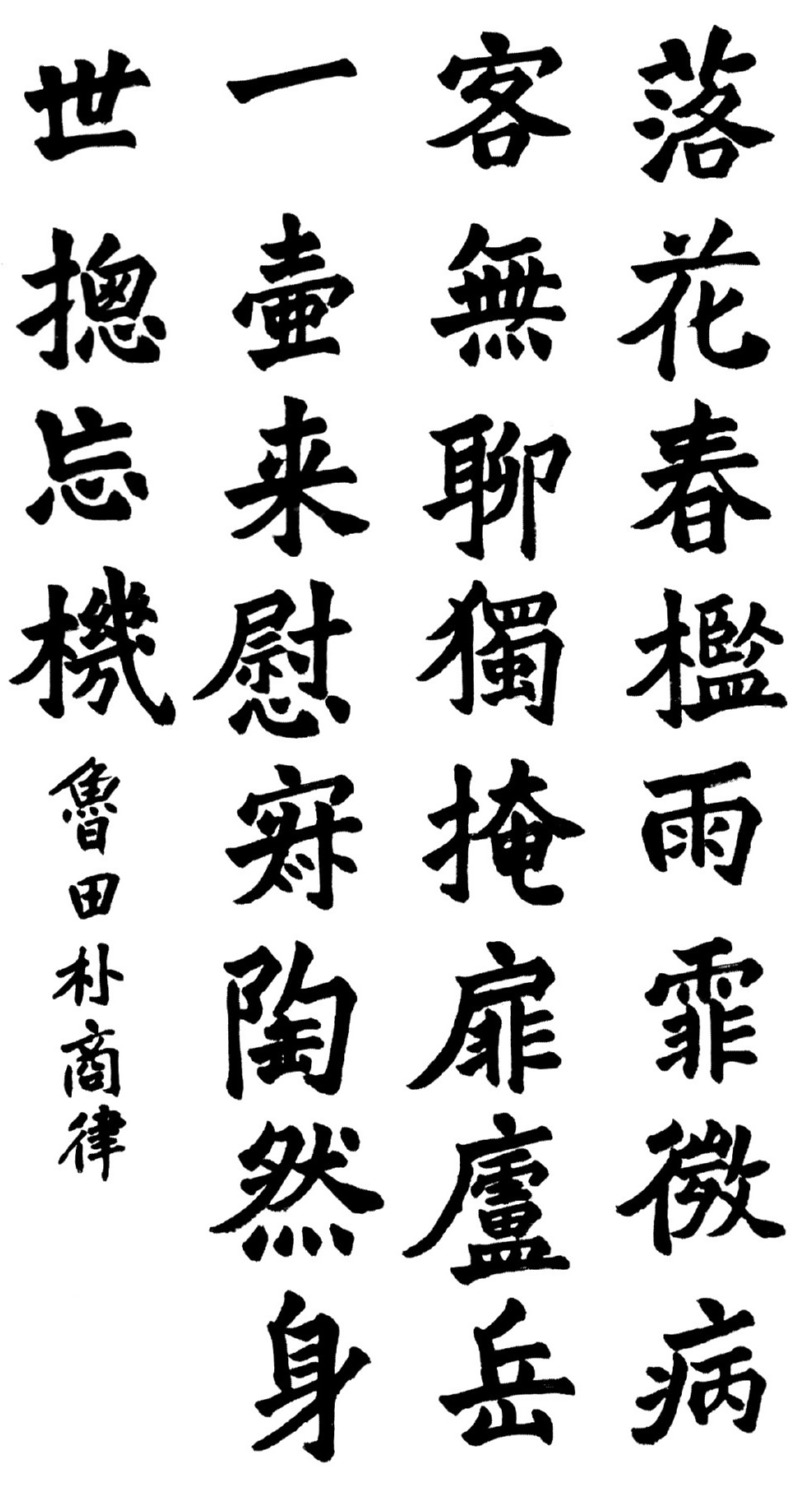 落花春檻雨霏微病
客無聊獨掩扉廬岳
一壷来慰寂陶然身
世摠忘機
魯田朴商律